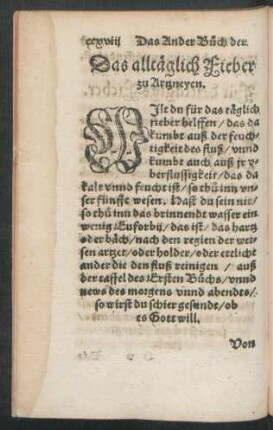 ccxviij Das Ander Bůch der
Das alltåglich Fieber
zu Artzneyen.
WIlt du für das tåglich
fieber helffen / das da
kumbt auß der feuch-
tigkeit des fluß / vnnd
kumbt auch auß jr v-
berflussigkeit / das da
kalt vnnd feucht ist / so thů inn vn-
ser fünffte wesen. Hast du sein nit /
so thů inn das brinnendt wasser ein
wenig Euforbij / das ist / das hartz
oder båch / nach den reglen der wei-
sen artzet / oder holder / oder ettliche
ander die den fluß reinigen / auß
der taffel des Ersten Bůchs / vnnd
news des morgens vnnd abendts /
so wirst du schier gesundt / ob
es Gott will.
Von